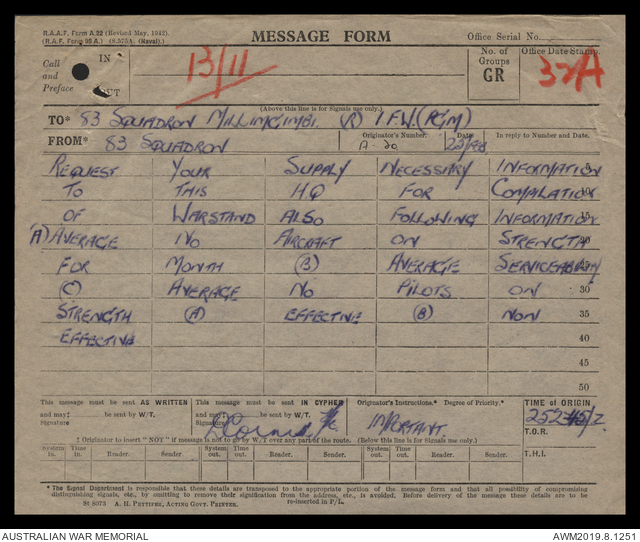 R.A.A.F. Form A 22 (Revised May, 1942).
(R.A.F. Form 96 A.) (S.575A. (Naval).)
MESSAGE FORM
Office Serial No.
Call and Preface
IN
OUT
13/11
No. of Groups
GR
Office Date Stamp.
32A
(Above this line is for Signals use only.)
TO* 83 SQUADRON MILLINGIMBI. (R) 1 F.W. (PGM)
FROM* 83 SQUADRON
Originator's Number.
A-20
Date
In reply to Number and Date.
REQUEST YOUR SUPPLY NECESSARY INFORMATION 5
TO THIS HQ FOR COMPILATION 10
OF WARSTAND ALSO FOLLOWING INFORMATION 15
(A) AVERAGE NO AIRCRAFT ON STRENGTH 20
FOR MONTH (B) AVERAGE SERVICEABILITY 25
(C) AVERAGE NO PILOTS ON 30
STRENGTH (A) EFFECTIVE (B) NON 35
EFFECTIVE 40
45
50
This message must be sent AS WRITTEN
and may† be sent by W/T.
Signature
This message must be sent IN CYPHER
and may† be sent by W/T.
Signature
Originator's Instructions.* Degree of Priority.*
IMPORTANT
TIME OF ORIGIN
T.O.R.
‡ Originator to insert "NOT" if message is not to go by W/T over any part of the route. (Below this line is for Signals use only.)
System in. Time in. Reader. Sender. System out. Time out. Reader. Sender. System out. Time out. Reader. Sender.
T.H.I.
* The Signal Department is responsible that these details are transposed to the appropriate portion of the message form and that all possibility of compromising
distinguishing signals, etc., by omitting to remove their signification from the address, etc., is avoided. Before delivery of this message these details are to be
re-inserted in P/L.
St 8373 A. H. PETTIFER, ACTING GOVT. PRINTER.
AUSTRALIAN WAR MEMORIAL
AWM2019.8.1251